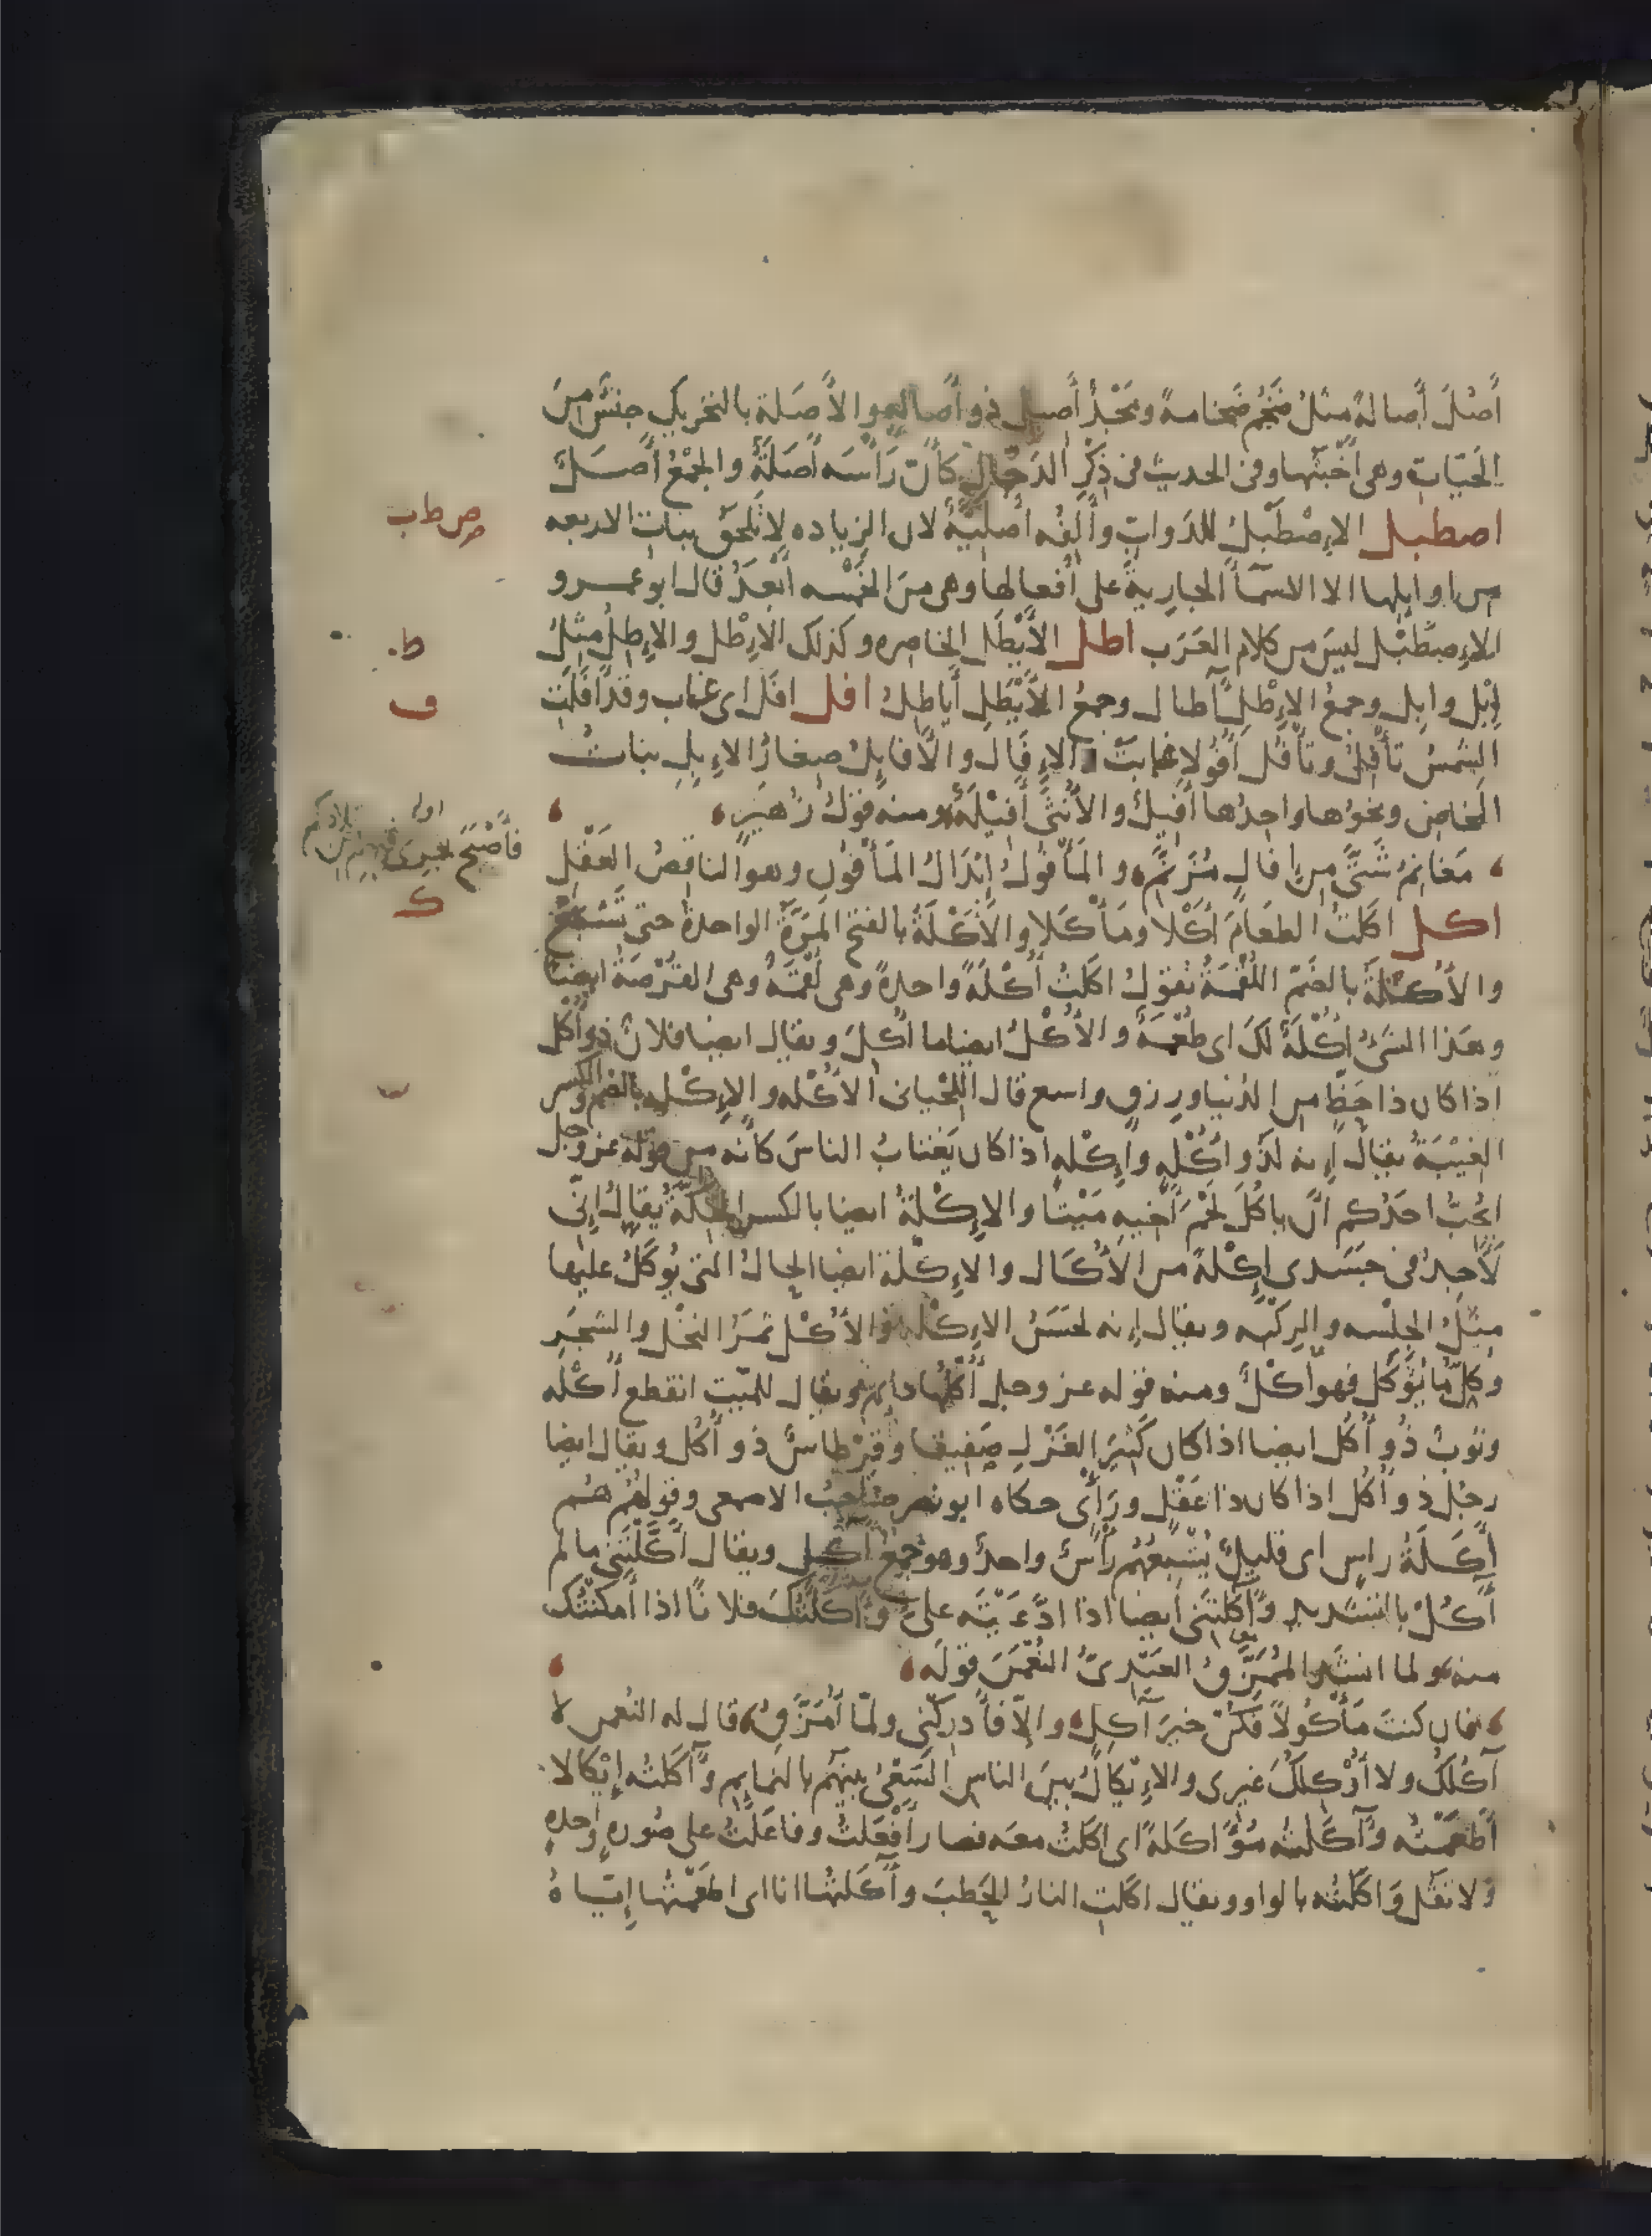 أَصُلَ أَصالةً مثلُ ضَخُم ضَخامةً ومَجْدٌ أَصيل ذو أَصالةٍ والأَصَلة بالتحريك جنسٌ من
الحَيّاتِ وهي أَخْبَثُها وفي الحديث في ذِكْرِ الدجّالِ كأَنّ رَأْسَه أَصَلَةٌ والجَمْعُ أَصَلٌ
اصطبل الإِصْطَبْلُ للدوابّ وأَلِفُه أَصليّةٌ لان الزياده لا تَلحقُ بناتِ الاربعه
من اوايلها الا الاسمآءَ الجاريةَ على أَفعالها وهى منَ الخمْسه أَبْعَدُ قال ابو عمرو
الإِصطَبْل ليسَ من كلام العَرَب اطل الأَيْطَل الخاصره وكذلك الإِطْل والإِطِلُ مثلُ
إِبْل وابِل وجمعُ الإِطْلِ آطال وجمعُ الأَيْطَلِ أَياطِلُ افل افَلَ اى غاب وقد أَفَلَتِ
الشمسُ تأْفِلُ وتأْفُل أُفُولا غابتْ والإِفَال والأَفايِلُ صغارُ الإِبِلِ بناتُ
المخاضِ ونحوُها واحِدُها أَفيلٌ والأُنثَى أَفِيْلَةٌ ومنه قولُ زُهَيْرٍ
فأَصْبَحَ يجرى فيهم من تلادكم
مَغانِمُ شَتّى من إِفالٍ مُزَنَّمِ والمَأْفولُ إِبْدالُ المَأْفونِ وهو الناقصُ العَقْلِ
اكل اكَلتُ الطعامَ أَكْلا ومَأْكَلا والأَكْلَةُ بالفتح المَرّةُ الواحدةُ حتى تَشْبَعَ
والأُكْلَةُ بالضَمّ اللُقْمَةُ تقولُ اكلتُ أُكْلَةً واحدةً وهى لُقْمَةٌ وهى القُرْصَةُ ايضا
وهَذا الشىُ أُكْلَةٌ لكَ اى طُعْمَةٌ والأُكْلُ ايضا ما أُكِلَ ويقال ايضا فلانٌ ذو أُكْل
اذا كان ذا حَظٍّ من الدُنيا ورزق واسع قال اللِحْيانى الأُكْله والإِكْله بالضم والكسر
الغيْبَةُ يقال إِنه لذُو أُكْلَةٍ وإِكْلةٍ اذا كان يَغتابُ الناسَ كأنّه من قوله عز وجل
ايُحبّ احَدُكم أَنْ ياكُلَ لَحْمَ أَخيهِ مَيْتًا والإِكْلةُ ايضا بالكسر الحِكّةُ يُقالُ إِنّى
لأَجدُ فى جَسَدى إِكْلةً من الأُكَال والإِكْلة ايضا الحالُ التى يُوكَلُ عليها
مثلُ الجِلْسه والرِكْبه ويقال إِنه لحَسَنُ الإِكْلةِ والأُكْل ثمَرُ النخْلِ والشجَرِ
وكلّ ما يُؤكَل فهو أُكْلٌ ومنه قوله عز وجل أُكُلُها دايمٌ ويقال للميّت انقطع أُكْلُه
وثوبٌ ذُو أُكْل ايضا اذا كان كَثيرَ الغَزْلِ صَفيقا وقِرْطاسٌ ذو أُكْل ويقال ايضا
رجُل ذو أُكْل اذا كان ذا عَقْل ورَأْى حكاه ابو نصر صَاحبُ الاصمعى وقولُهُم هُم
أَكَلَةُ راسٍ اى قليلٌ يُشْبعُهُم رَأْسٌ واحدٌ وهو جمع آكِل ويقال أَكَّلْتَنِى ما لم
آكُلْ بالتشديد وآكَلْتَنى أَيضا اذا ادّعَيْتَه علىّ وآكَلْتُكَ فلانًا اذا أَمكَنْتُك
منه ولما انشد المُمَزّقُ العَبْدِىُّ النُعْمٰنَ قولَه
فان كنتَ مَأْكُولًا فَكُنْ خيرَ آكِلِ والاّ فأَدركْنى ولمّا أُمَزَّقِ قال له النعمن لا
آكُلُكَ ولا أُوْكِلكَ غيرى والإِيكالُ بينَ الناس السَعْىُ بينهم بالنمايم وآكَلتُه إِيْكالا
أَطعَمْتُه وآكَلتُه مُؤَاكَلةً اى اكلتُ معَه فصار أَفْعَلتُ وفاعَلْتُ على صُورةٍ واحده
ولا تقُل وَاكَلْتُه بالواو ويقال اكَلتِ النارُ الحَطبَ وآكَلتُها انا اى اطعَمْتُها إِيّاهُ